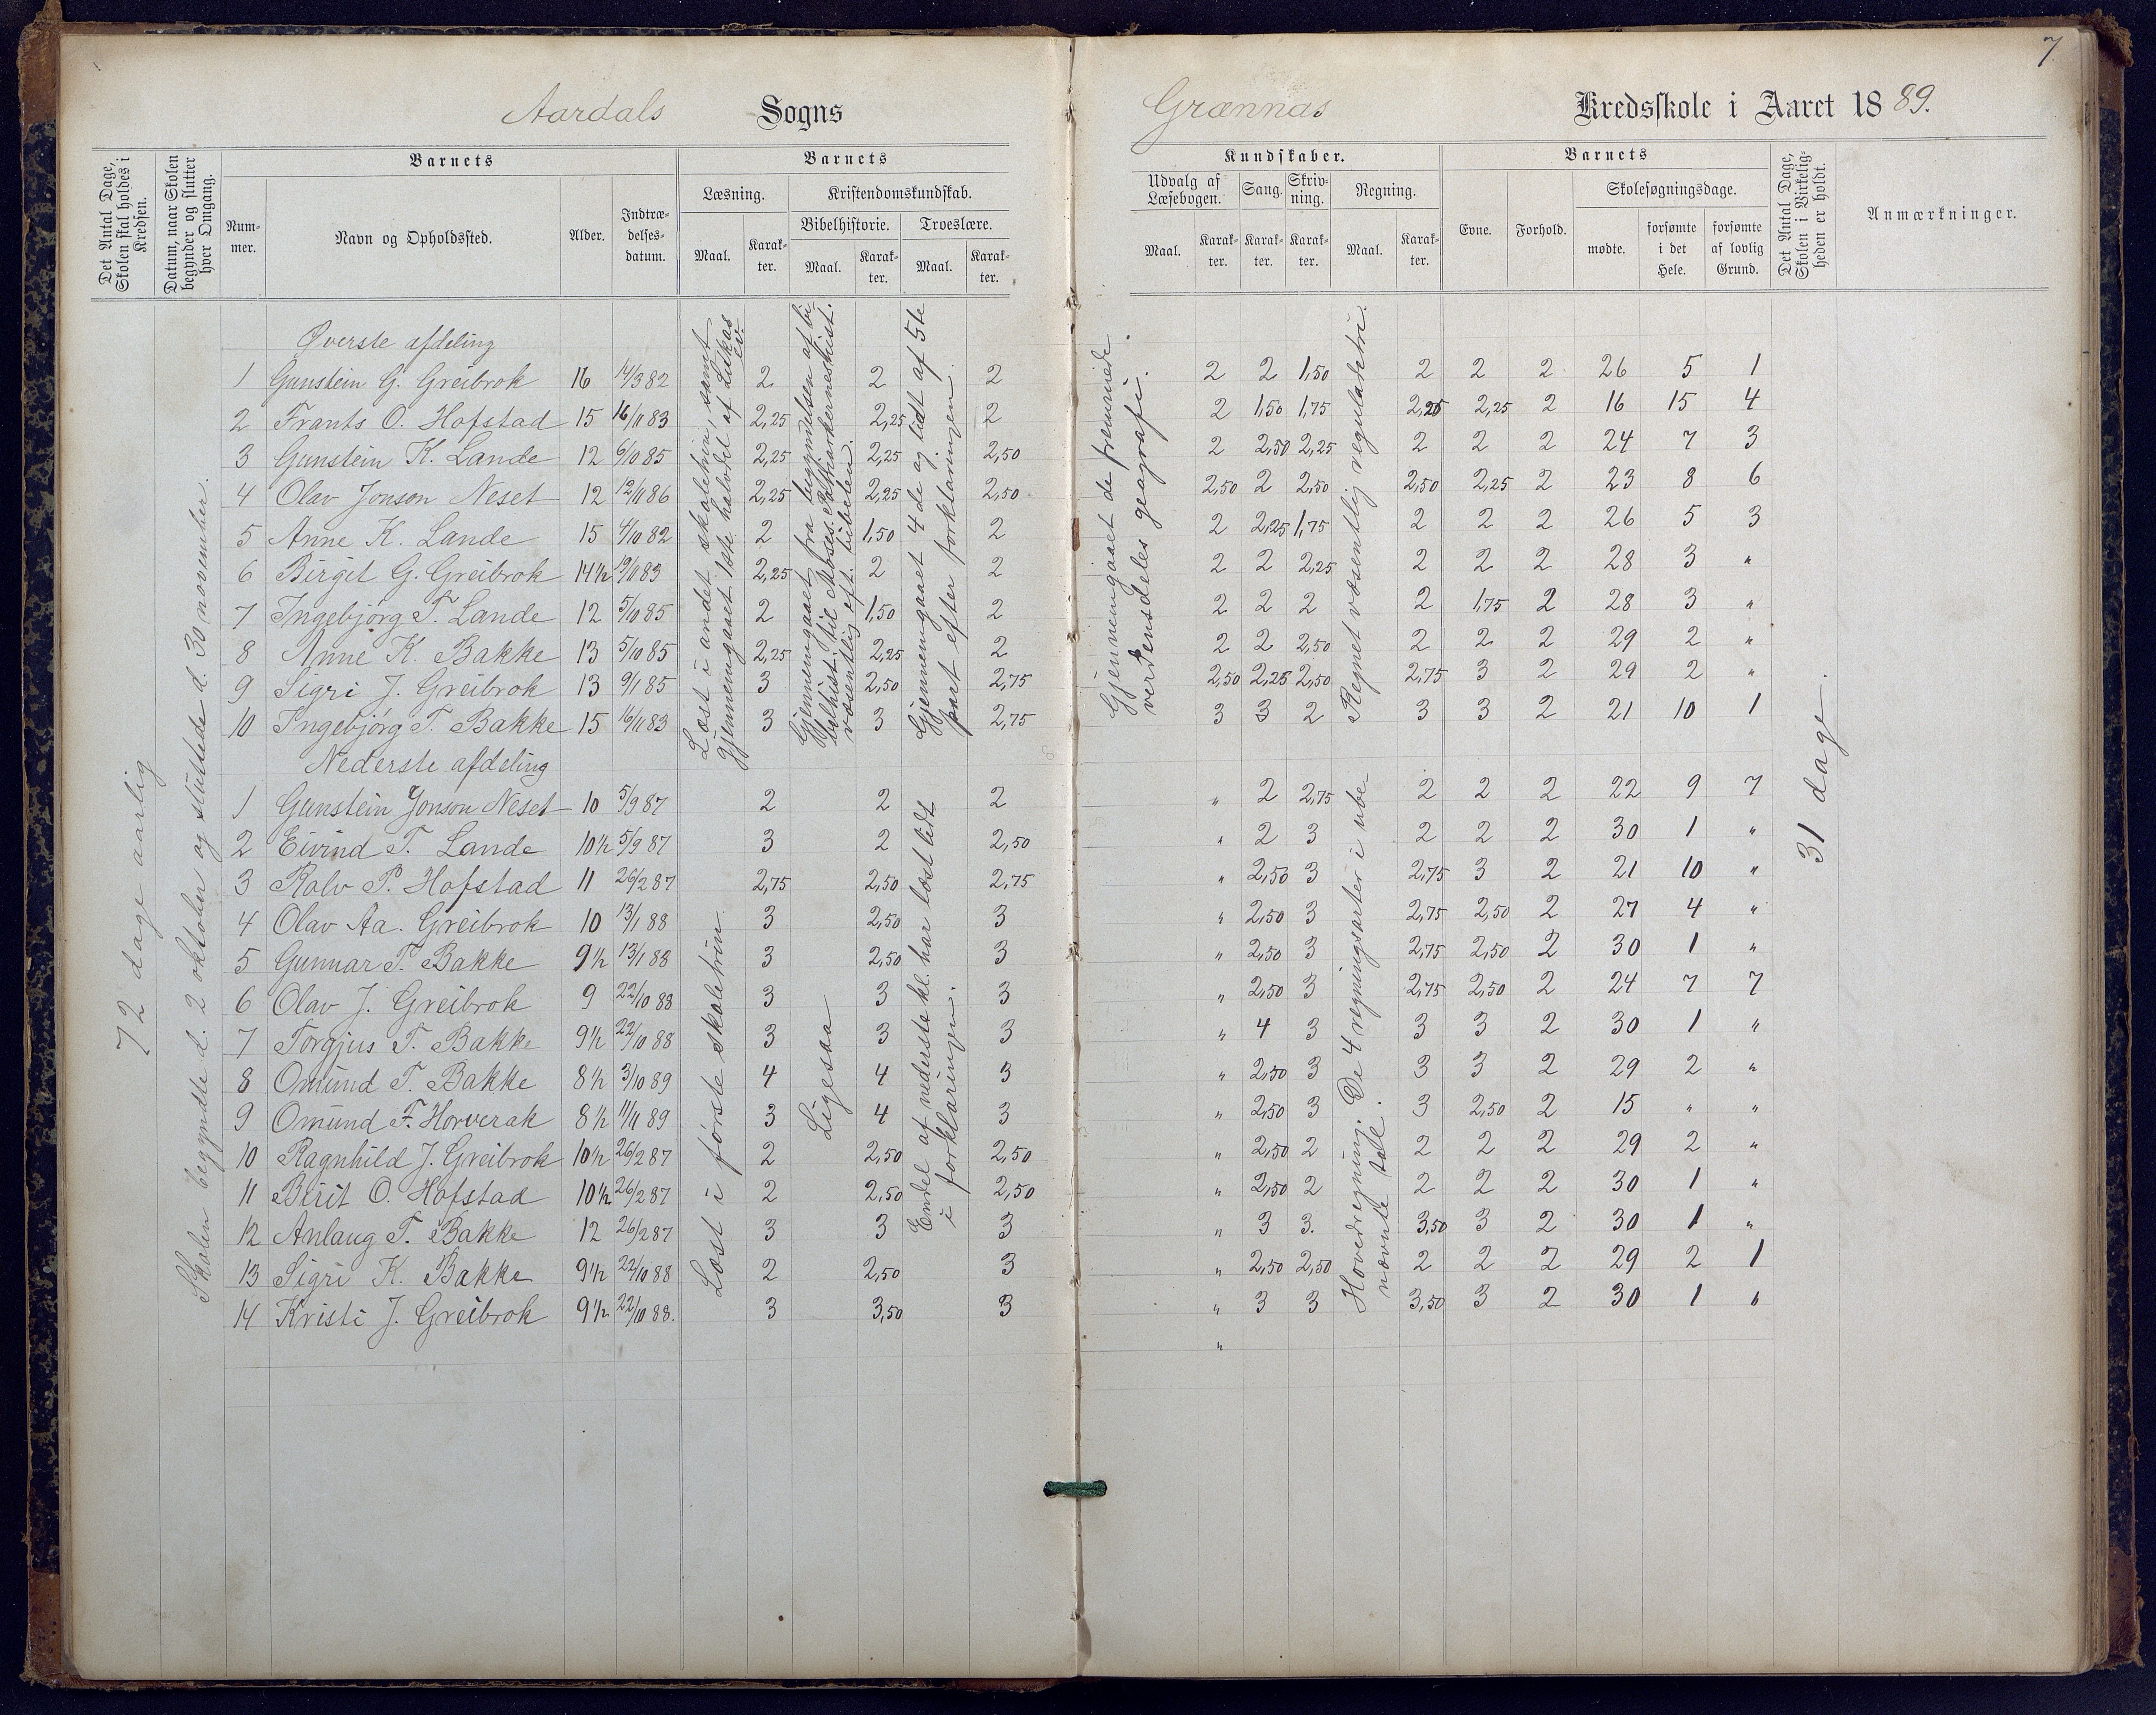 7
Aardals Sogns
Grænnas Kredsskole i Aaret 1889.
Det Antal Dage, Skolen skal holdes i Kredsen.
Datum, naar Skolen begynder og slutter hver Omgang.
Barnets
Num-mer.
Navn og Opholdssted.
Alder.
Indtræ-delses-datum.
Barnets
Læsning.
Maal. Karak-ter.
Kristendomskundskab.
Bibelhistorie. Troeslære.
Maal. Karak-ter. Maal. Karak-ter.
Kundskaber.
Udvalg af Læsebogen. Sang. Skriv-ning. Regning.
Maal. Karak-ter. Karak-ter. Karak-ter. Maal. Karak-ter.
Barnets
Evne. Forhold.
Skolesøgningsdage.
mødte. forsømte i det Hele. forsømte af lovlig Grund.
Det Antal Dage, Skolen i Virkelig-heden er holdt.
Anmærkninger.
72 dage aarlig
Skolen begyndte d. 2 oktober og sluttede d. 30 november.
Øverste afdeling
1 Gunstein G. Greibrok 16 14/3 82 2 2 2 2 2 1,50 2 2 2 26 5 1
2 Frants O. Hofstad 15 16/11 83 2,25 2,25 2 2 1,50 1,75 2,25 2,25 2 16 15 4
3 Gunstein K. Lande 12 6/10 85 2,25 2,25 2,50 2 2,50 2,25 2 2 2 24 7 3
4 Olav Jonson Neset 12 12/11 86 2,25 2,25 2,50 2,50 2 2,50 2,50 2,25 2 23 8 6
5 Anne K. Lande 15 4/10 82 2 1,50 2 2 2,25 1,75 2 2 2 26 5 3
6 Birgit G. Greibrok 14½ 19/11 83 2,25 2 2 2 2 2,25 2 2 2 28 3 "
7 Ingebjørg T. Lande 12 5/10 85 2 1,50 2 2 2 2 2 1,75 2 28 3 "
8 Anne K. Bakke 13 5/10 85 2,25 2,25 2 2 2 2,50 2 2 2 29 2 "
9 Sigri J. Greibrok 13 9/1 85 3 2,50 2,75 2,50 2,25 2,50 2,75 3 2 29 2 "
10 Ingebjørg T. Bakke 15 16/11 83 3 3 2,75 3 3 2 3 3 2 21 10 1
Læst i andet skoletrin, samt
gjennemgaaet 1ste halvdel af Lukas
ev.
Gjennemgaaet fra begyndelsen af bi
belhist. til Moses. Patriarkerneshist.
væsentlig eft. bibelen.
Gjennemgaaet 4de og lidt af 5te
part efter forklaringen.
Gjennemgaaet de fremmede
verdensdeles geografi.
Regnet væsentlig reguladetri.
Nederste afdeling
1 Gunstein Jonson Neset 10 5/9 87 2 2 2 " 2 2,75 2 2 2 22 9 7
2 Eivind T. Lande 10½ 5/9 87 3 2 2,50 " 2 3 2 2 2 30 1 "
3 Rolv P. Hofstad 11 26/2 87 2,75 2,50 2,75 " 2,50 3 2,75 3 2 21 10 "
4 Olav Aa. Greibrok 10 13/1 88 3 2,50 3 " 2,50 3 2,75 2,50 2 27 4 "
5 Gunnar T. Bakke 9½ 13/1 88 3 2,50 3 " 2,50 3 2,75 2,50 2 30 1 "
6 Olav J. Greibrok 9 22/10 88 3 3 3 " 2,50 3 2,75 2,50 2 24 7 7
7 Torgjus T. Bakke 9½ 22/10 88 3 3 3 " 4 3 3 3 2 30 1 "
8 Omund T. Bakke 8½ 3/10 89 4 4 3 " 2,50 3 3 3 2 29 2 "
9 Omund F. Horverak 8½ 11/11 89 3 4 3 " 2,50 3 3 2,50 2 15 " "
10 Ragnhild J. Greibrok 10½ 26/2 87 2 2,50 2,50 " 2,50 2 2 2 2 29 2 "
11 Birit O. Hofstad 10½ 26/2 87 2 2,50 2,50 " 2,50 2 2 2 2 30 1 "
12 Anlaug T. Bakke 12 26/2 87 3 3 3 " 3 3. 3,50 3 2 30 1 "
13 Sigri K. Bakke 9½ 22/10 88 2 2,50 3 " 2,50 2,50 2 2 2 29 2 1
14 Kristi J. Greibrok 9½ 22/10 88. 3 3,50 3 " 3 3 3,50 3 2 30 1 "
"
Læst i første skoletrin
Ligesaa
Endel af nederste kl. har læst lidt
i forklaringen.
Hovedregning. De 4 regningsarter i ube
nævnte tall.
31 dage.